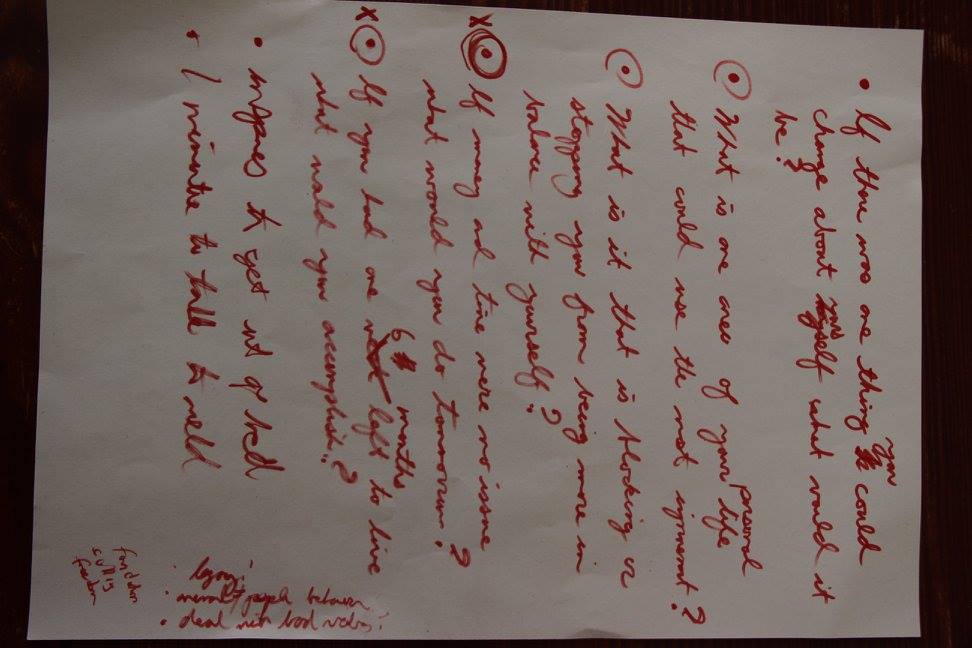 • If there was one thing you could
change about yourself what would it
be?
• What is one area of your personal life
that could use the most improvement?
• What is it that is blocking or
stopping you from being more in
balance with yourself?
x • If money and time were no issue
what would you do tomorrow?
x • If you had 6 months left to live
what would you accomplish?
• inspires to get out of bed
• 1 minute to talk to world
• legacy?
people behaviour
• deal with bad
freedom